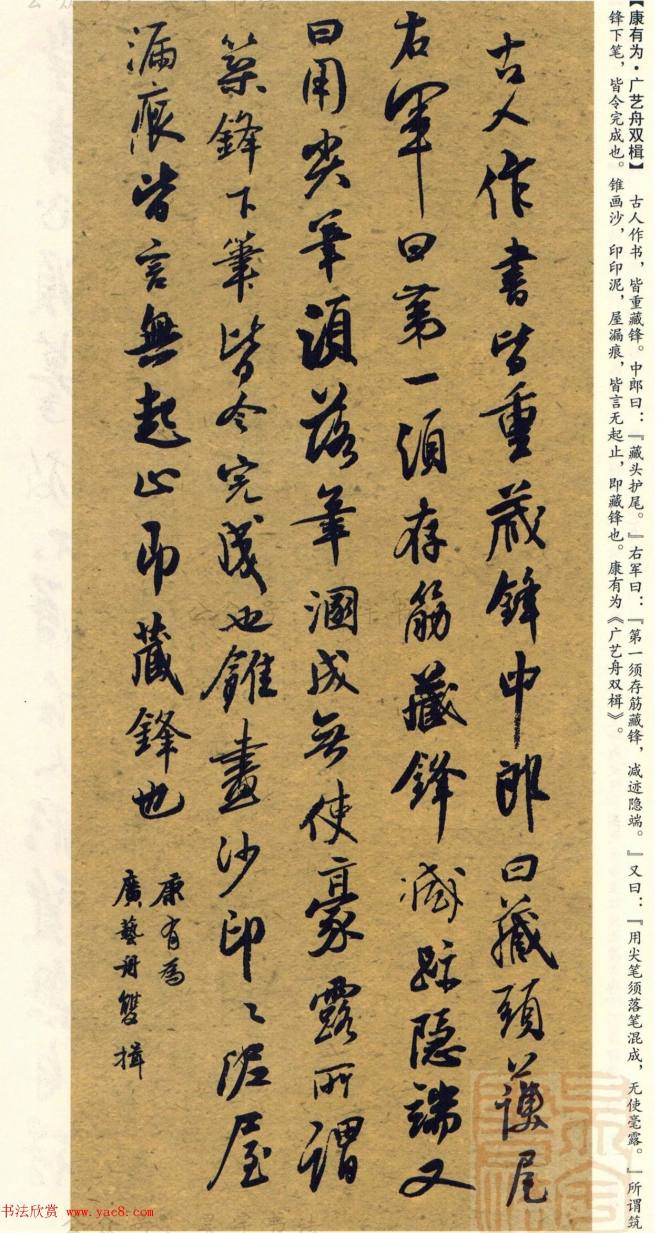 【康有为·广艺舟双楫】 古人作书，皆重藏锋。中郎曰：『藏头护尾。』右军曰：『第一须存筋藏锋，减迹隐端。』又曰：『用尖笔须落笔混成，无使毫露。』所谓筑
锋下笔，皆令完成也。锥画沙，印印泥，屋漏痕，皆言无起止，即藏锋也。康有为《广艺舟双楫》。
古人作書皆重藏鋒中郎曰藏頭護尾
右軍曰第一須存筋藏鋒滅跡隱端又
曰用尖筆須落筆溷成無使豪露所謂
築鋒下筆皆令完成也錐畫沙印〻泥屋
漏痕皆言無起止即藏鋒也
康有為
廣藝舟雙楫
书法欣赏 www.yac8.com